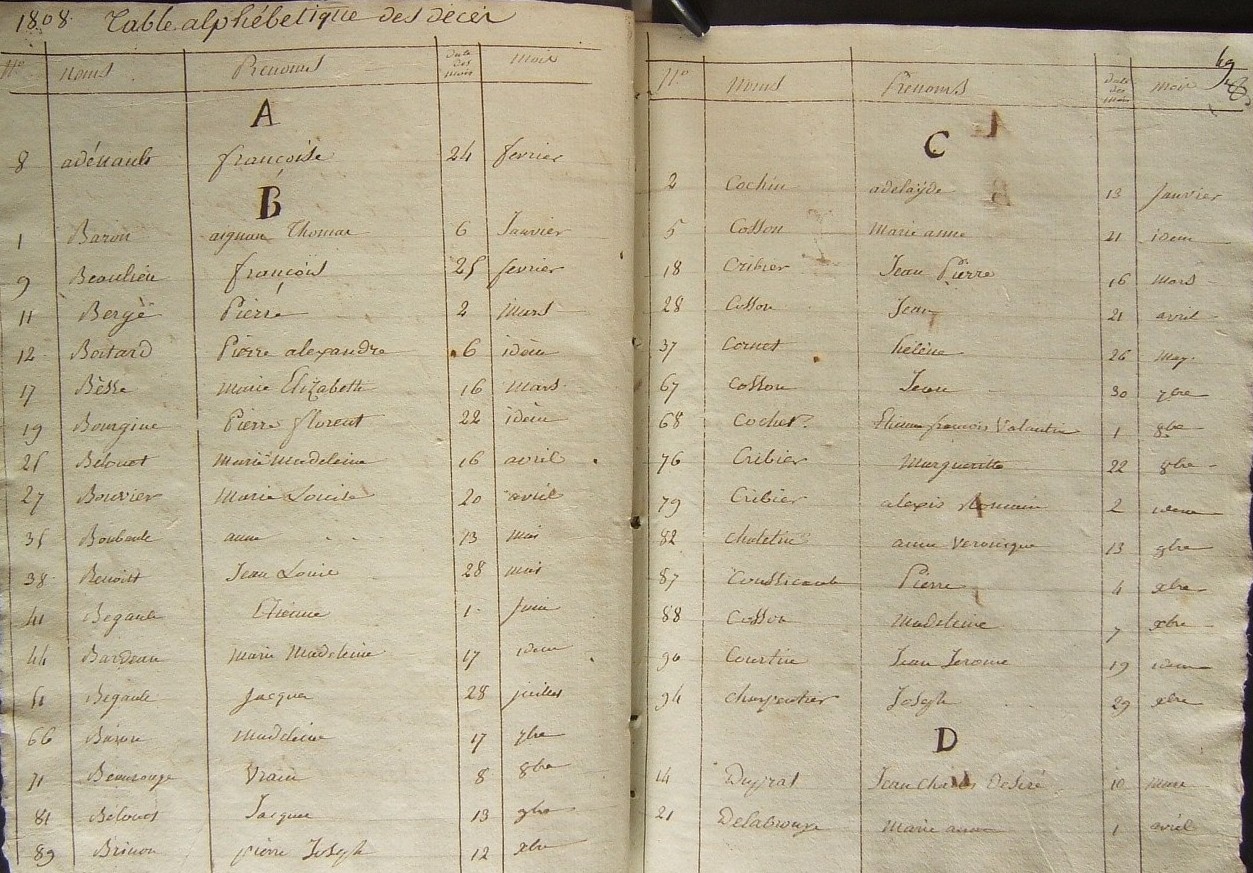 1808. Table alphébetique des décér
No Noms Prenoms date des mois mois
A
8 adénault françoise 24 fevrier
B
1 Baron aignan Thomas 6 Janvier
9 Beaulieu françois 25 fevrier
11 Bergé Pierre 2 Mars
12 Boitard Pierre alexandre 6 idem
17 Bèsse marie Elizabeth 16 mars
19 Bourgine Pierre florent 22 idem
25 Bélouet Marie Madeleine 16 avril
27 Bouvier Marie Louise 20 avril
35 Boubault anne 13 mai
38 Benoist Jean Louis 28 mai
41 Begault Etienne 1 Juin
44 Bardeau Marie Madeleine 17 idem
51 Begault Jacques 28 juillet
66 Baron Madeleine 17 7bre
71 Beaurouge Vrain 8 8bre
81 Bélouet Jacques 13 9bre
89 Brinon pierre Joseph 12 xbre
No Noms Prenoms date des mois mois
C
2 Cochin adelaÿde 13 Janvier
5 Cosson Marie anne 21 idem
18 Cribier Jean Pierre 16 mars
28 Cosson Jean 21 avril
37 Cornet hélène 26 may
67 Cosson Jean 30 7bre
68 Cochet Etienne françois Valantin 1 8bre
76 Cribier Margueritte 22 8bre
79 Cribier alexis Romain 2 idem
82 Choletin anne Veronique 13 9bre
87 Coussicault Pierre 4 xbre
88 Cosson Madeleine 7 xbre
90 Courtin Jean Jerome 19 idem
94 Charpentier Joseph 29 xbre
D
14 Duprat Jean Charles Desiré 10 Mars
21 Delabrouse Marie anne 1 avril